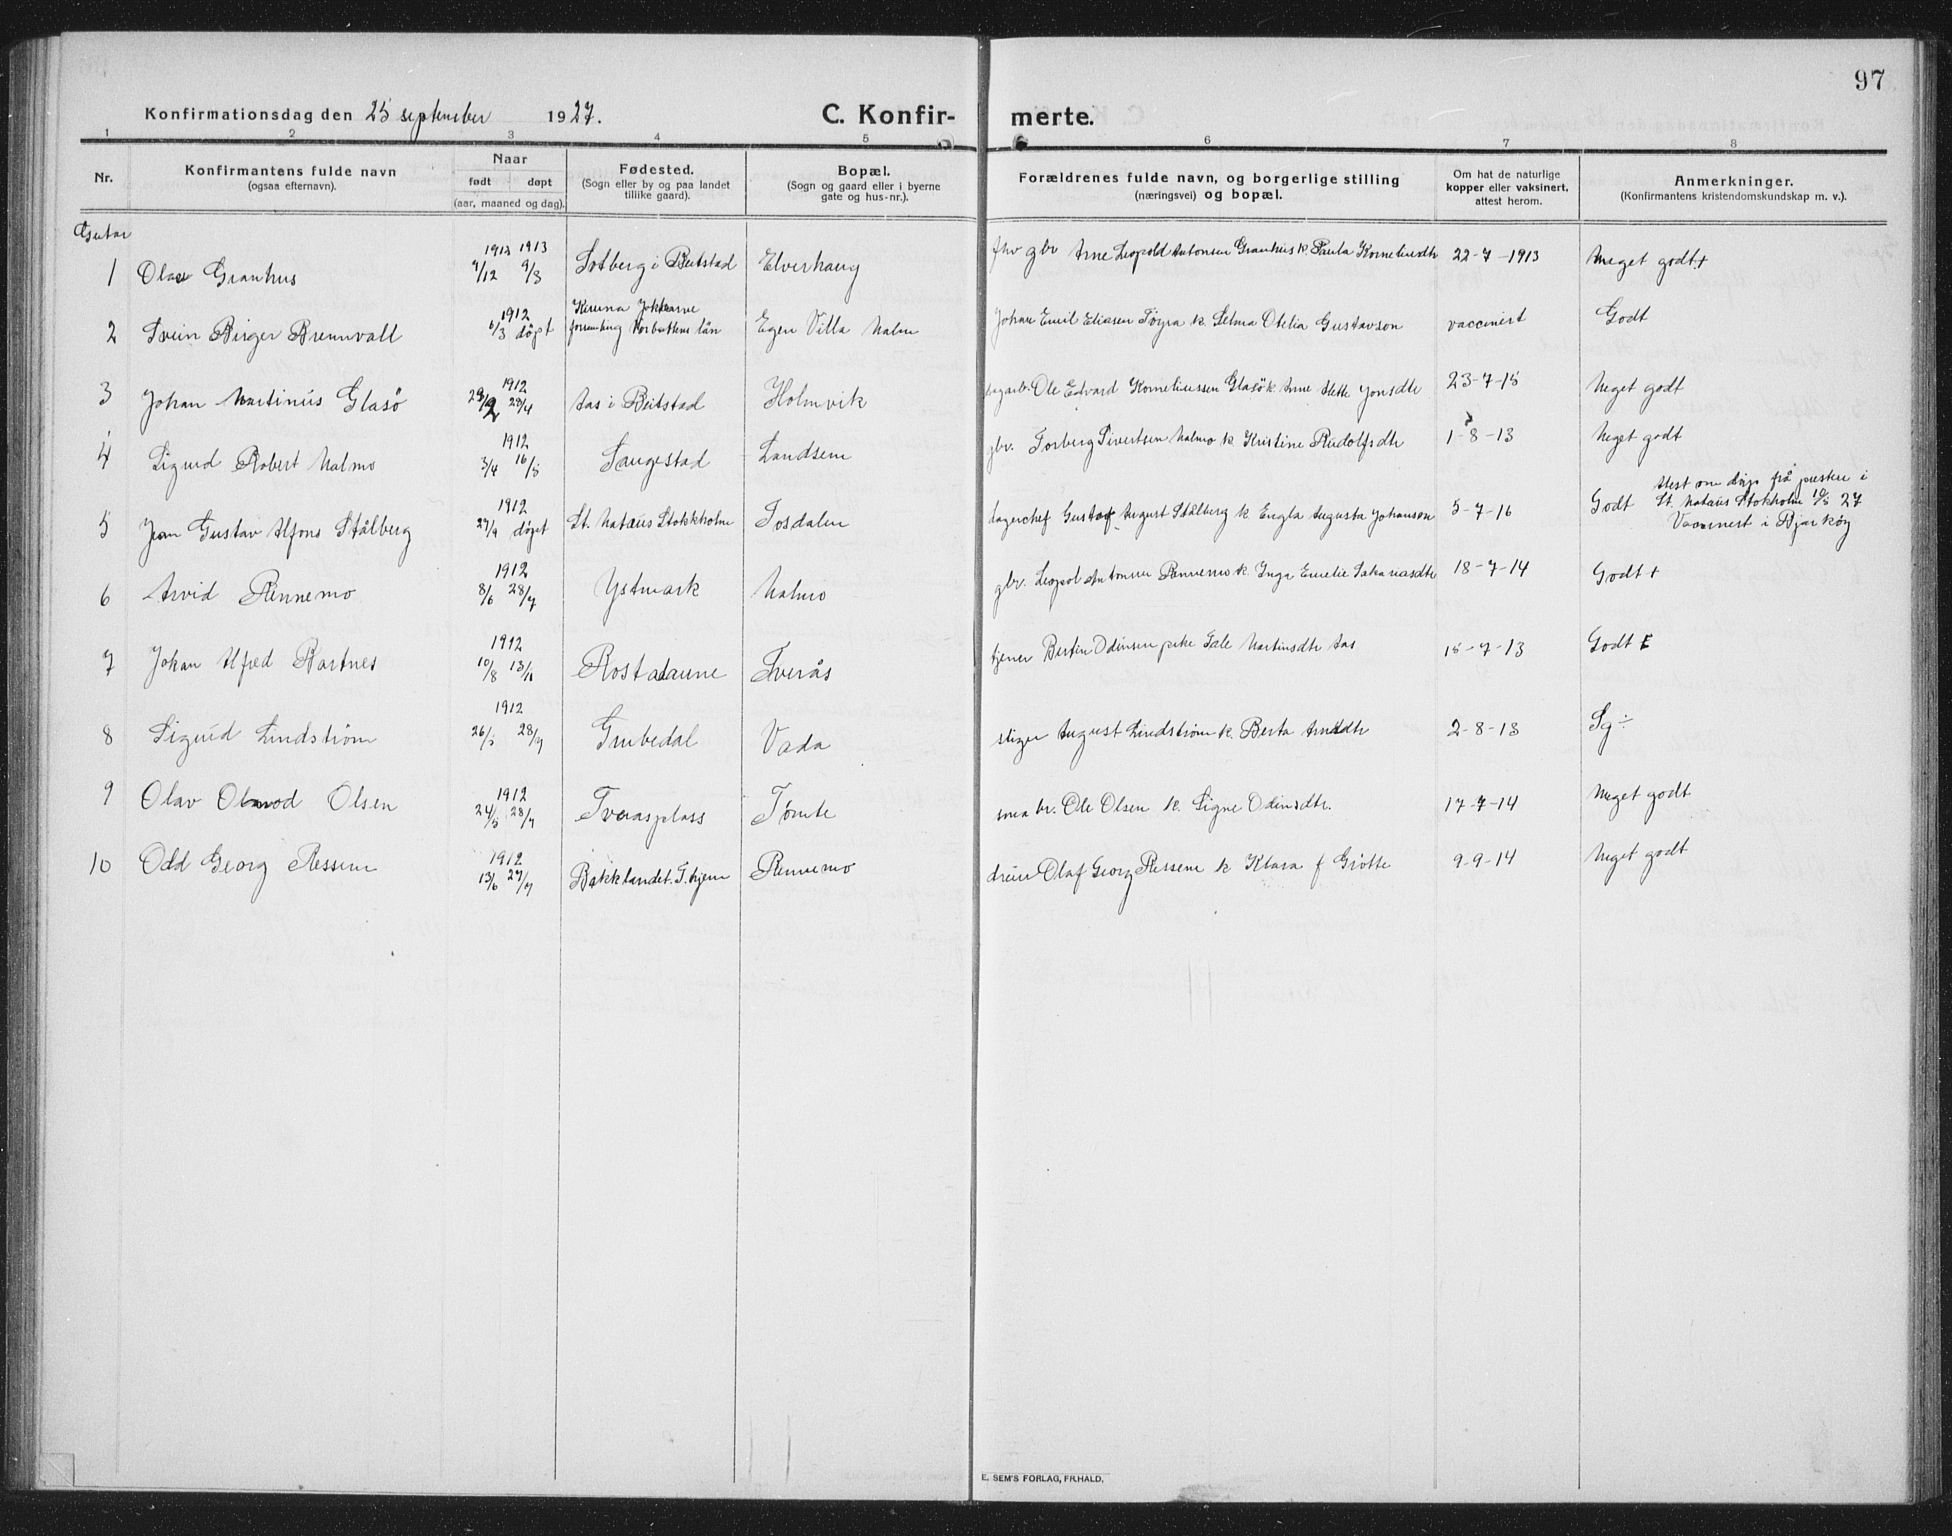 97
Konfirmationsdag den 25 september 1927. C. Konfir- merte.
1 2 3 4 5 6 7 8
Nr. Konfirmantens fulde navn (ogsaa efternavn). Naar født døpt (aar, maaned og dag). Fødested. (Sogn eller by og paa landet tillike gaard). Bopæl. (Sogn og gaard eller i byerne gate og hus-nr.). Forældrenes fulde navn, og borgerlige stilling (næringsvei) og bopæl. Om hat de naturlige kopper eller vaksinert, attest herom. Anmerkninger. (Konfirmantens kristendomskundskap m. v.).
Gutar
1 Olav Granhus 1912 1913 9/12 9/3 Solberg i Beitstad Elverhaug fhv gbr Arne Leopold Antonsen Granhus k Paula Korneliusdtr 22-7-1913 Meget godt +
2 Svein Birger Brennvall 1912 6/3 døpt Kiruna Jukkasjärvi forsamling Norbottens län Egen Villa Malm Johan Emil Eliasen Töyra k. Selma Otelia Gustavson vaccinert Godt
3 Johan Martinus Glasø 1912 28/4 Aas i Beitstad Holmvik Ole Edvard Korneliussen Glasø k Anne Mette Jonsdtr 23-7-15 Meget godt
4 Sigurd Robert Malmo 1912 3/4 16/5 Saugestad Landsem gbr. Torberg Sivertsen Malmo k Kristine Rudolfsdtr 1-8-13 Meget godt
5 Jean Gustav Alfons Stålberg 1912 27/9 døpt St. Mataus Stokkholm Fosdalen lagerchef Gustaf August Stålberg k Engla Augusta Johanson 5-7-16 Godt Attest om dåp frå presten i St. Mataus Stokholm 10/5 27 Vaccinert i Bjarkøy
6 Arvid Rennemo 1912 8/6 28/7 Ystmark Malmo gbr. Leopol Antonsen Rennemo k. Inga Emelie Sakariasdtr 18-7-14 Godt +
7 Johan Alfred Bartnes 1912 10/8 13/10 Rostadaune Tverås tjener Bertin Odinsen pike Jale Martinsdtr Aas 15-7-13 Godt
8 Sigurd Lindstrøm 1912 26/5 28/7 Grubedal Vada stiger August Lindstrøm k. Berta Arntsdtr 2-8-13 Sg÷
9 Olav Olsen 1912 24/5 28/7 Tveraasplass Tømte sma br. Ole Olsen k. Signe Odinsdtr. 17-7-14 Meget godt
10 Odd Georg Ressem 1912 13/6 27/7 Bakklandet. T.hjem Rennemo dreier Olaf Georg Ressem k Klara f Grøtte 9-9-14 Meget godt
E. SEM'S FORLAG, FR.HALD.